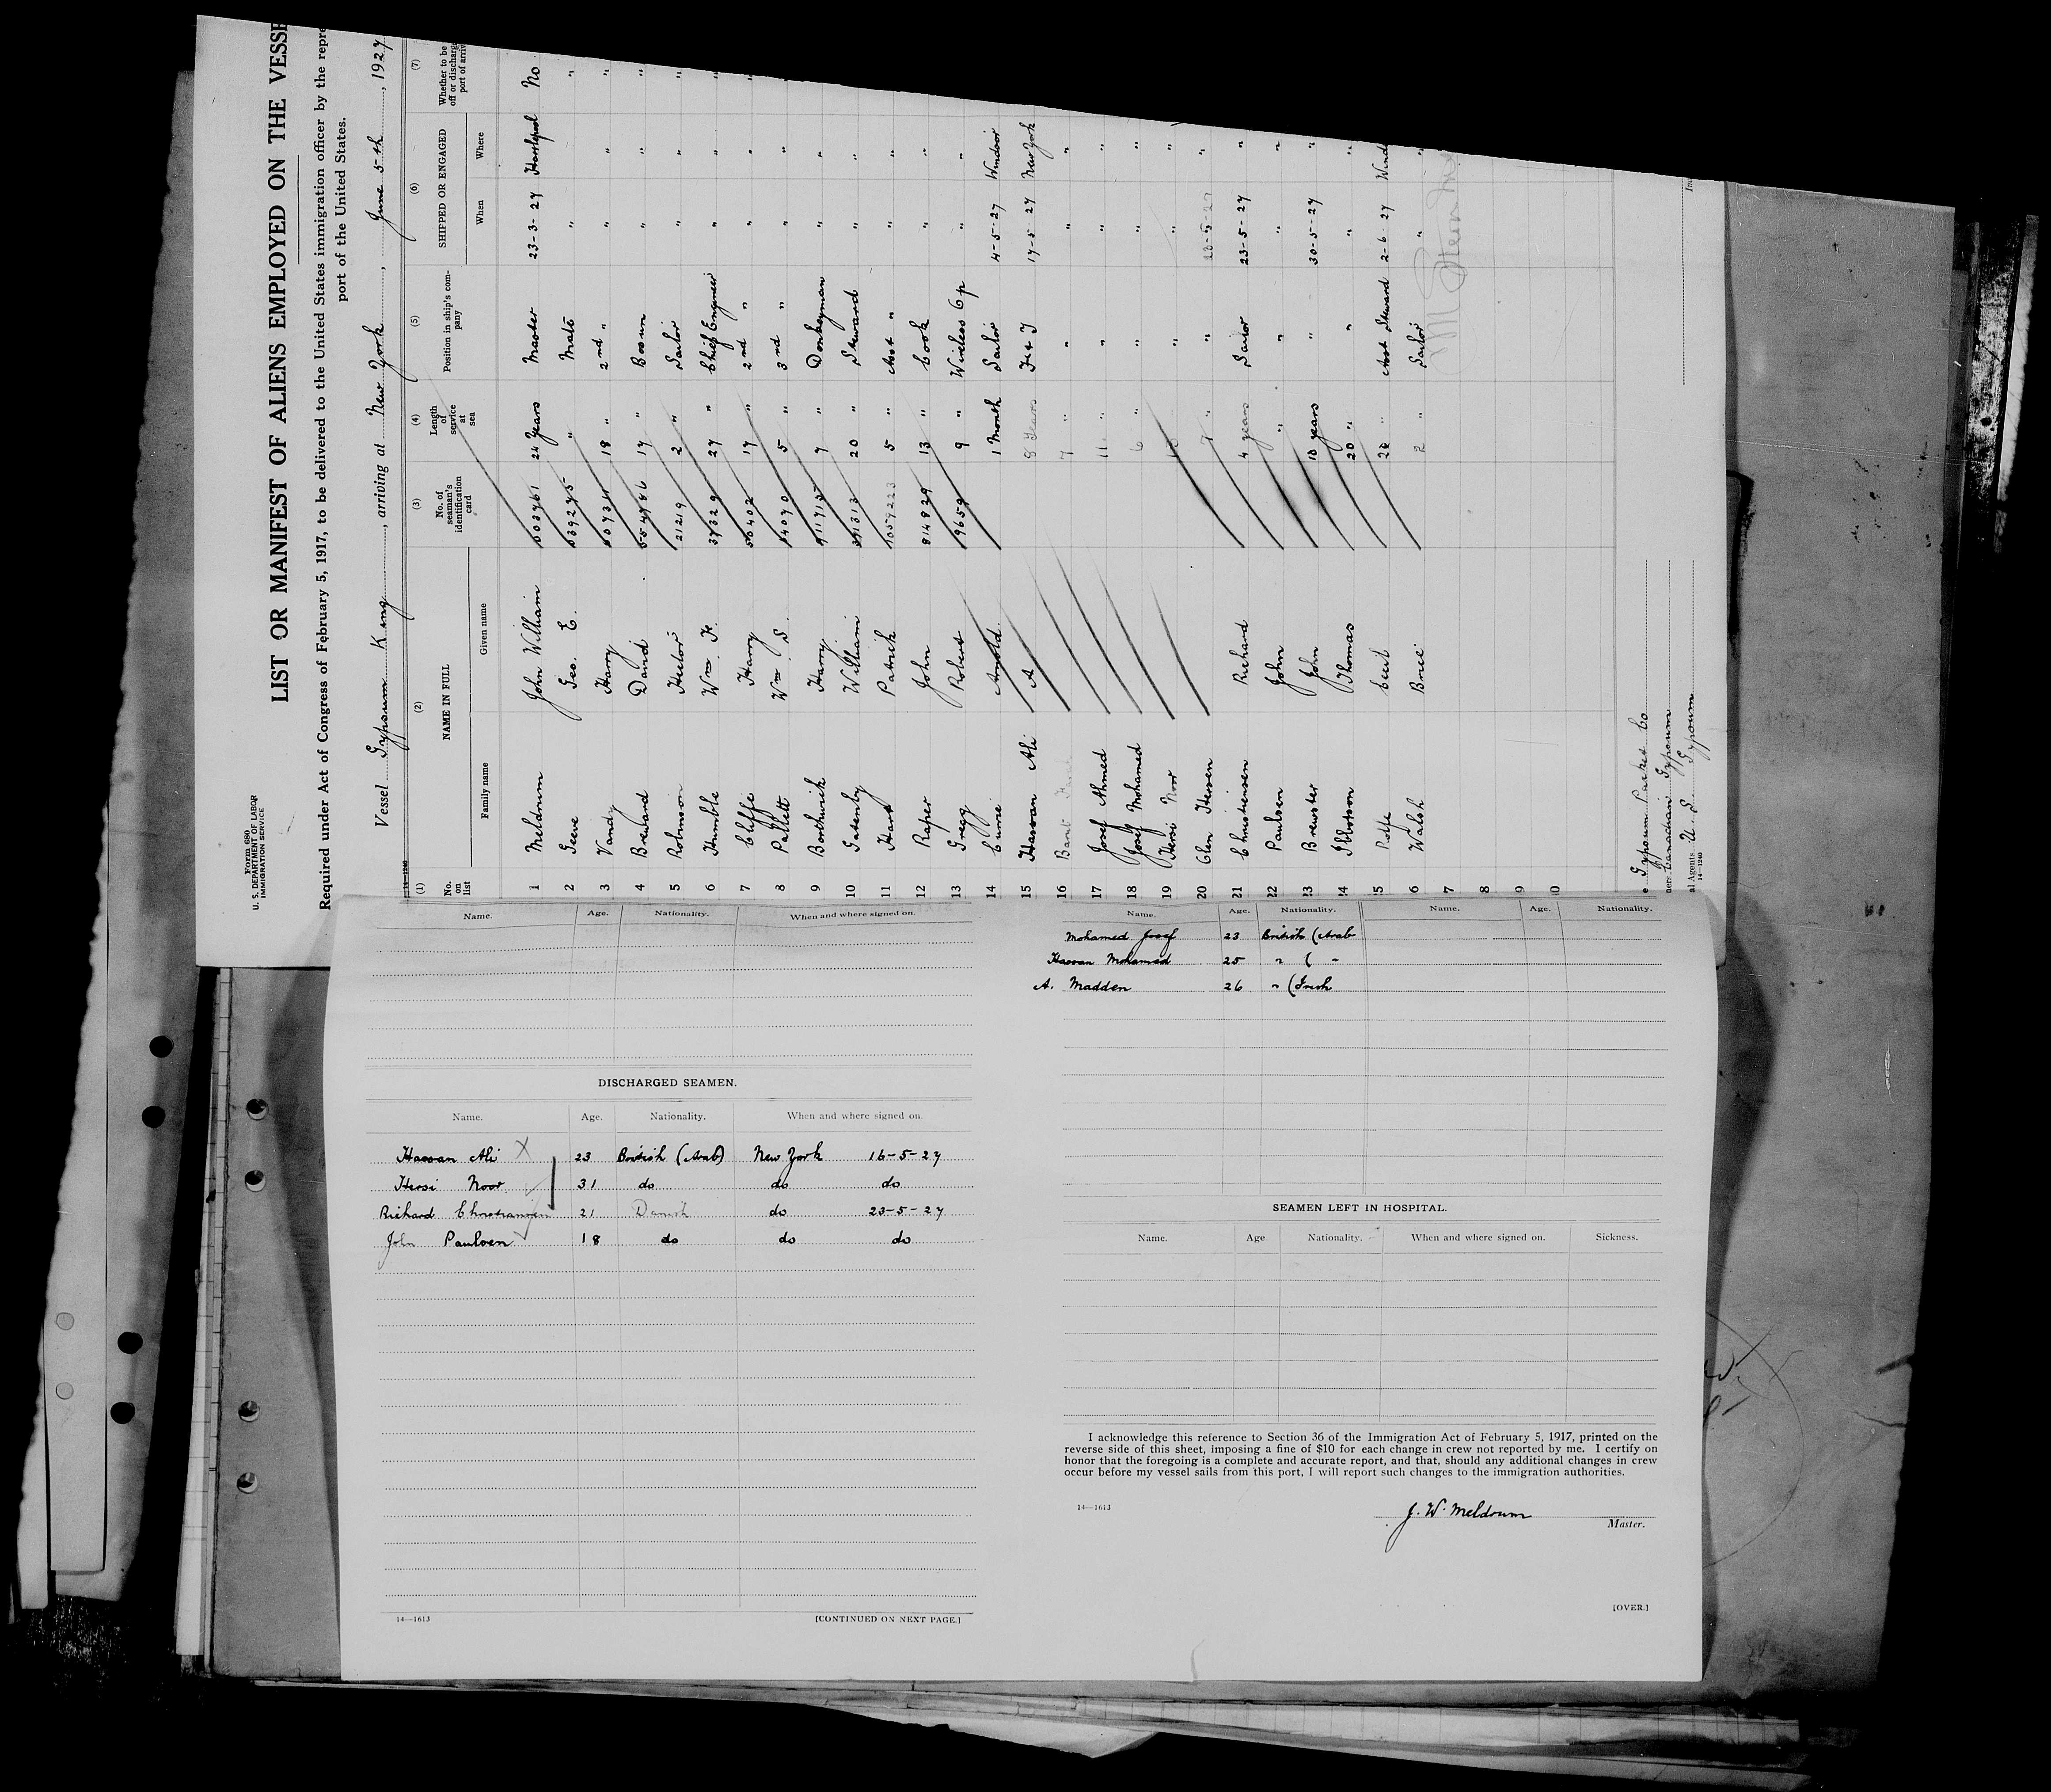 Form 680
U. S. DEPARTMENT OF LABOR
IMMIGRATION SERVICE
LIST OR MANIFEST OF ALIENS EMPLOYED ON THE VESSE
Required under Act of Congress of February 5, 1917, to be delivered to the United States immigration officer by the repre
port of the United States.
Vessel Gypsum King, arriving at New York, June 5th, 1927
14—1240
(1) (2) (3) (4) (5) (6) (7)
No. on list NAME IN FULL No. of seaman's identification card Length of service at sea Position in ship's company SHIPPED OR ENGAGED Whether to be off or discharge port of arriv
Family name Given name When Where
1 Meldrum John William 24 Years Master 23-3-27 Hartlepool No
2 Geo. E. 639275 " Mate " "
3 Vandy Harry 18 " 2nd " " " "
4 Breward David 17 " Bosun " " "
5 Robinson Hector 21219 2 " Sailor " " "
6 Humble Wm. H. 37329 27 " Chief Engineer " " "
7 Cliffe Harry 17 " 2nd " " " "
8 Pallett Wm. S. 5 " 3rd " " " "
9 Borthwick Harry 7 " Donkeyman " "
10 Gatenby William 20 " Steward " "
11 Hart Patrick 1059223 5 " Asst " " "
12 Raper John 814829 13 " Cook " "
13 Gregg Robert 9 " Wireless Op " "
14 Currie Arnold 1 Month Sailor 4-5-27 Windsor
15 Hassan Ali A 8 Years F & T 17-5-27 New York
16 7 " " " "
17 Josef Ahmed 11 " " " "
18 Josef Mohamed 6 " " " "
19 Hersi Noor " " "
20 Glen Hersen 7 " " "
21 Christiansen Richard 4 years Sailor 23-5-27 "
22 Paulsen John " " " "
23 Brewster John 10 years " 30-5-27 "
24 Ibbotson Thomas 20 " " " "
25 Rolfe Cecil " Asst Steward 2-6-27 Wind
6 Walsh Brie 2 " Sailor " "
7
8
9
0
Gypsum Packet Co
ners Canadian Gypsum
al Agents U. S. Gypsum
14—1240
Name. Age. Nationality. When and where signed on.
DISCHARGED SEAMEN.
Name. Age. Nationality. When and where signed on.
Hassan Ali X 23 British (Arab) New York 16-5-27
Hersi Noor 31 do do do
Richard Christiansen 21 Danish do 23-5-27
John Paulsen 18 do do do
14—1613 [CONTINUED ON NEXT PAGE.]
Name. Age. Nationality. Name. Age. Nationality.
Mohamed Josef 23 British (Arab
Hassan Mohamed 25 " ( "
A. Madden 26 " (Irish
SEAMEN LEFT IN HOSPITAL.
Name. Age Nationality. When and where signed on. Sickness.
I acknowledge this reference to Section 36 of the Immigration Act of February 5, 1917, printed on the
reverse side of this sheet, imposing a fine of $10 for each change in crew not reported by me. I certify on
honor that the foregoing is a complete and accurate report, and that, should any additional changes in crew
occur before my vessel sails from this port, I will report such changes to the immigration authorities.
14—1613
J. W. Meldrum
Master.
[OVER.]